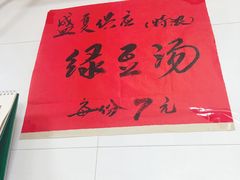 盛夏供应
绿豆汤
每份7元